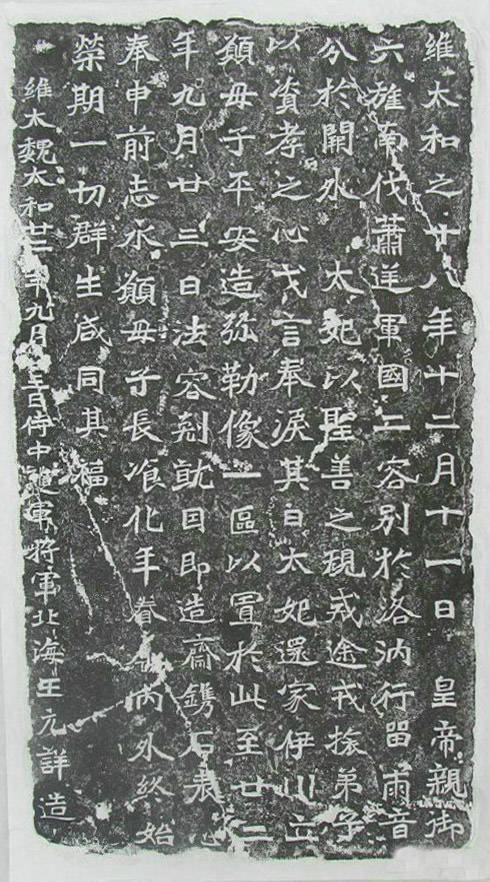 維太和之十八年十二月十一日　皇帝親御
六旌南伐蕭逆軍國二容別於洛汭行留兩音
分於闕外　太妃以聖善之規戒途戎旅弟子
以資孝之心戈言奉淚其日太妃還家伊川立
願母子平安造弥勒像一區以置於此至廿二
年九月廿三日法容剋就因即造齋鐫石表心
奉申前志永願母子長飡化年眷屬內外終始
榮期一切群生咸同其福
維太魏太和廿二年九月廿三日侍中護軍將軍北海王元詳造